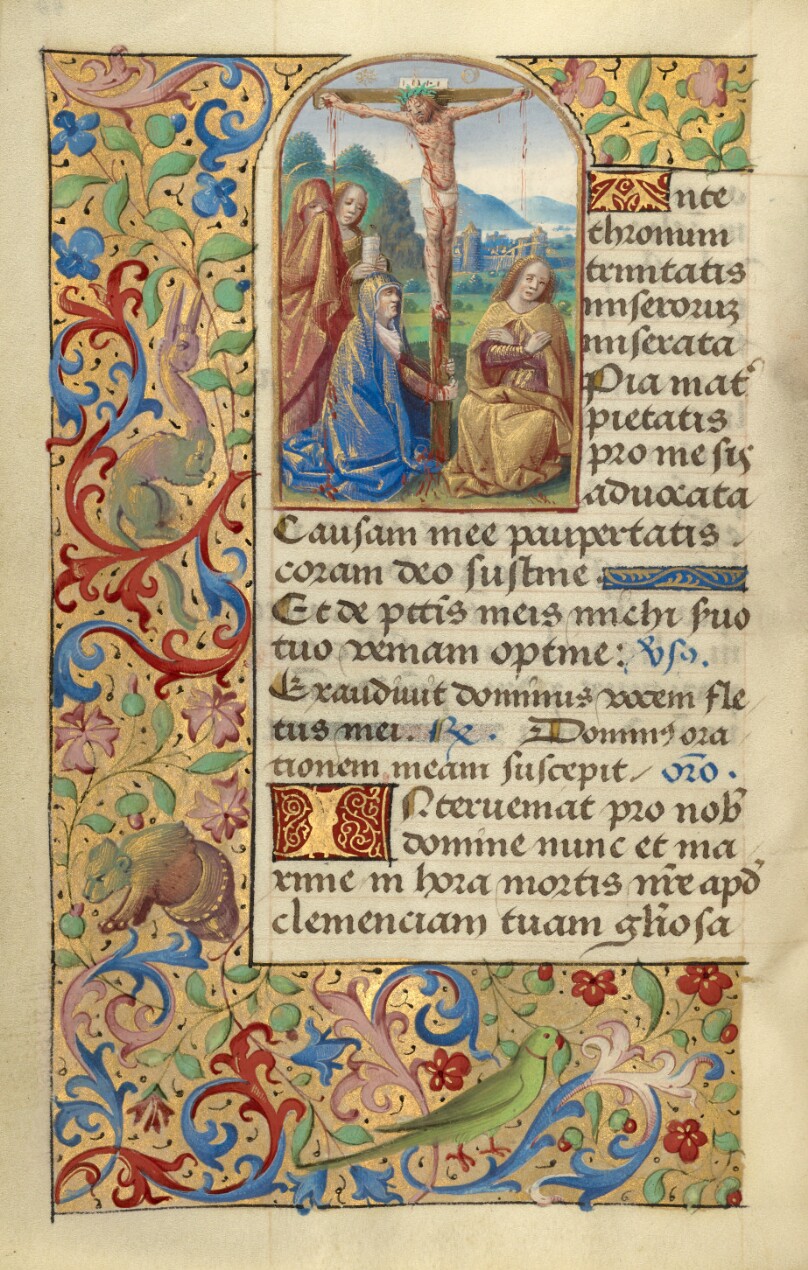 INRI
Ante
thronum
trinitatis
miserorum
miserata
Pia mat'
pietatis
pro me sis
aduocata
Causam mee paupertatis .
coram deo sustine
Et de pctis meis michi filio
tuo veniam optine: v̄so.
Exaudiuit dominus vocem fle
tus mei. R. Dominus ora
tionem meam suscepit / oro.
INterueniat pro nob'
domine nunc et ma
xime in hora mortis nr̄e apd'
clemenciam tuam gl'iosa